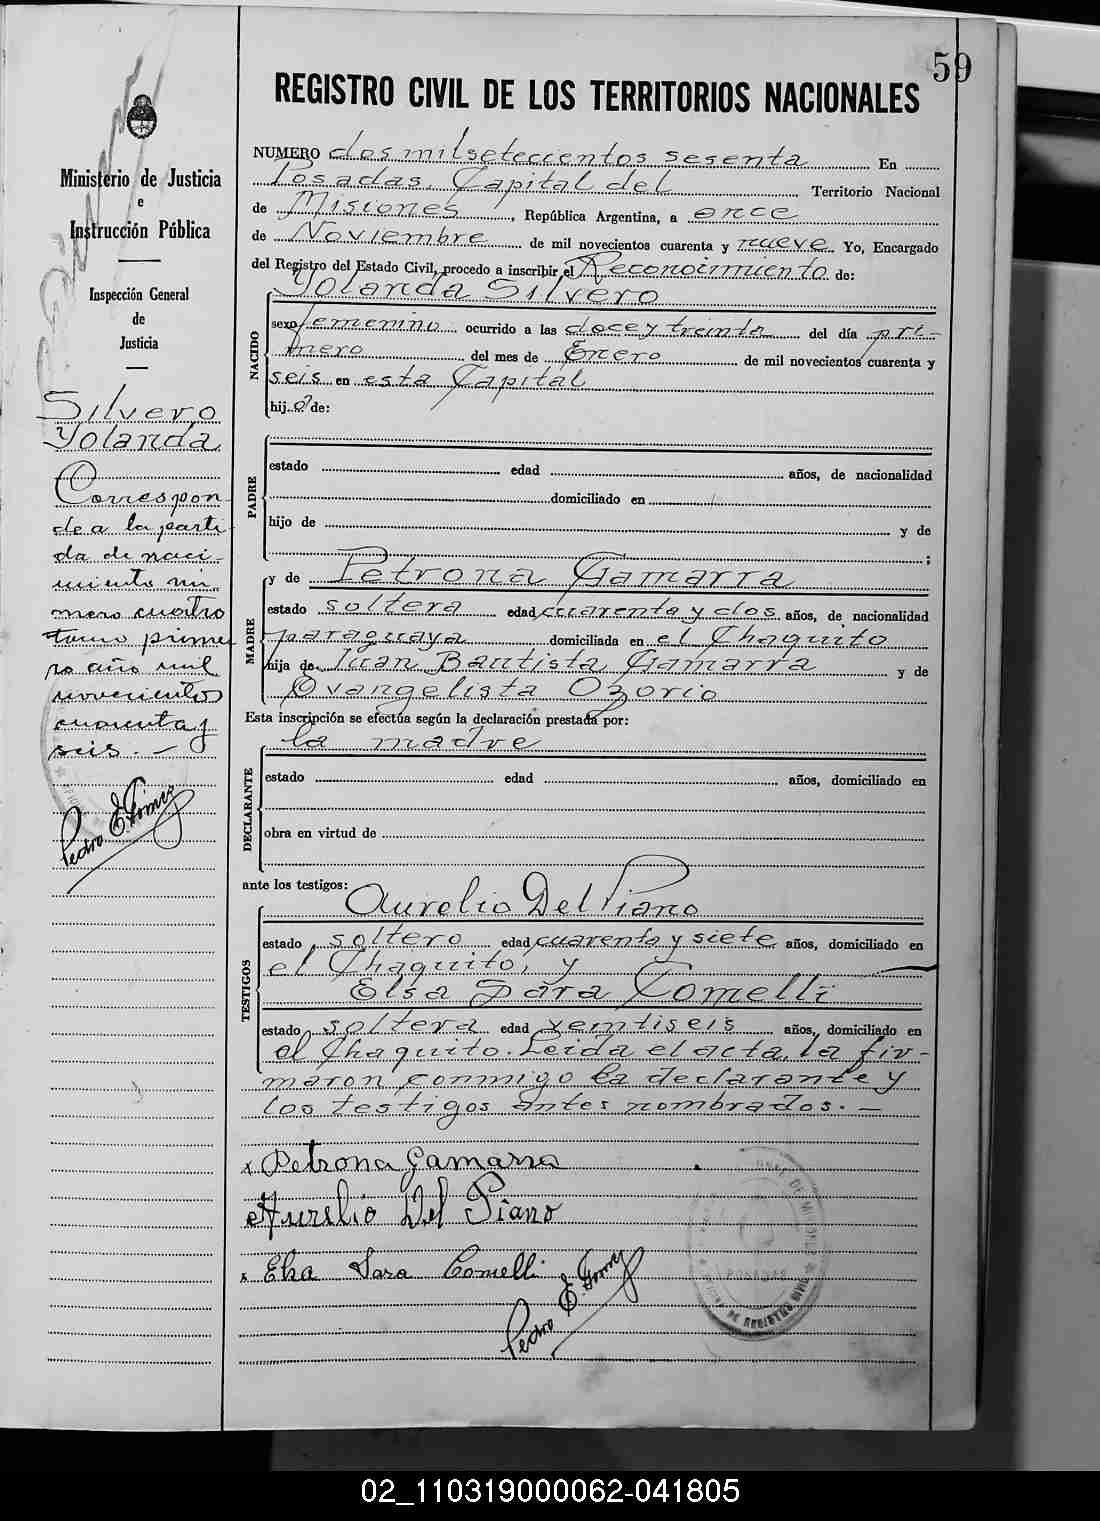 59
REGISTRO CIVIL DE LOS TERRITORIOS NACIONALES
Ministerio de Justicia
e
Instrucción Pública
Inspección General
de
Justicia
Silvero
Yolanda
Correspon-
de a la parti-
da de naci-
miento nú
mero cuatro
tomo prime
ro año mil
novecientos
cuarenta y
seis. —
Pedro E. Gómez
NUMERO dos mil setecientos sesenta En
Posadas, Capital del Territorio Nacional
de Misiones, República Argentina, a once
de Noviembre de mil novecientos cuarenta y nueve Yo, Encargado
del Registro del Estado Civil, procedo a inscribir el Reconocimiento de:
Yolanda Silvero
NACIDO
sexo femenino ocurrido a las doce y treinta del día pri-
mero del mes de Enero de mil novecientos cuarenta y
seis en esta Capital
hija de:
PADRE
estado edad años, de nacionalidad
domiciliado en
hijo de y de
;
y de Petrona Gamarra
MADRE
estado soltera edad cuarenta y dos años, de nacionalidad
paraguaya domiciliada en el Chaquito
hija de Juan Bautista Gamarra y de
Evangelista Ozorio
Esta inscripción se efectúa según la declaración prestada por:
la madre
DECLARANTE
estado edad años, domiciliado en
obra en virtud de
ante los testigos:
Aurelio Del Piano
TESTIGOS
estado soltero edad cuarenta y siete años, domiciliado en
el Chaquito, y
Elsa Sara Comelli
estado soltera edad veintiseis años, domiciliado en
el Chaquito. Leida el acta, la fir-
maron conmigo la declarante y
los testigos antes nombrados. —
x Petrona Gamarra
Aurelio Del Piano
x Elsa Sara Comelli
Pedro E. Gómez
POSADAS
OFICINA DE REGISTRO CIVIL
02_110319000062-041805